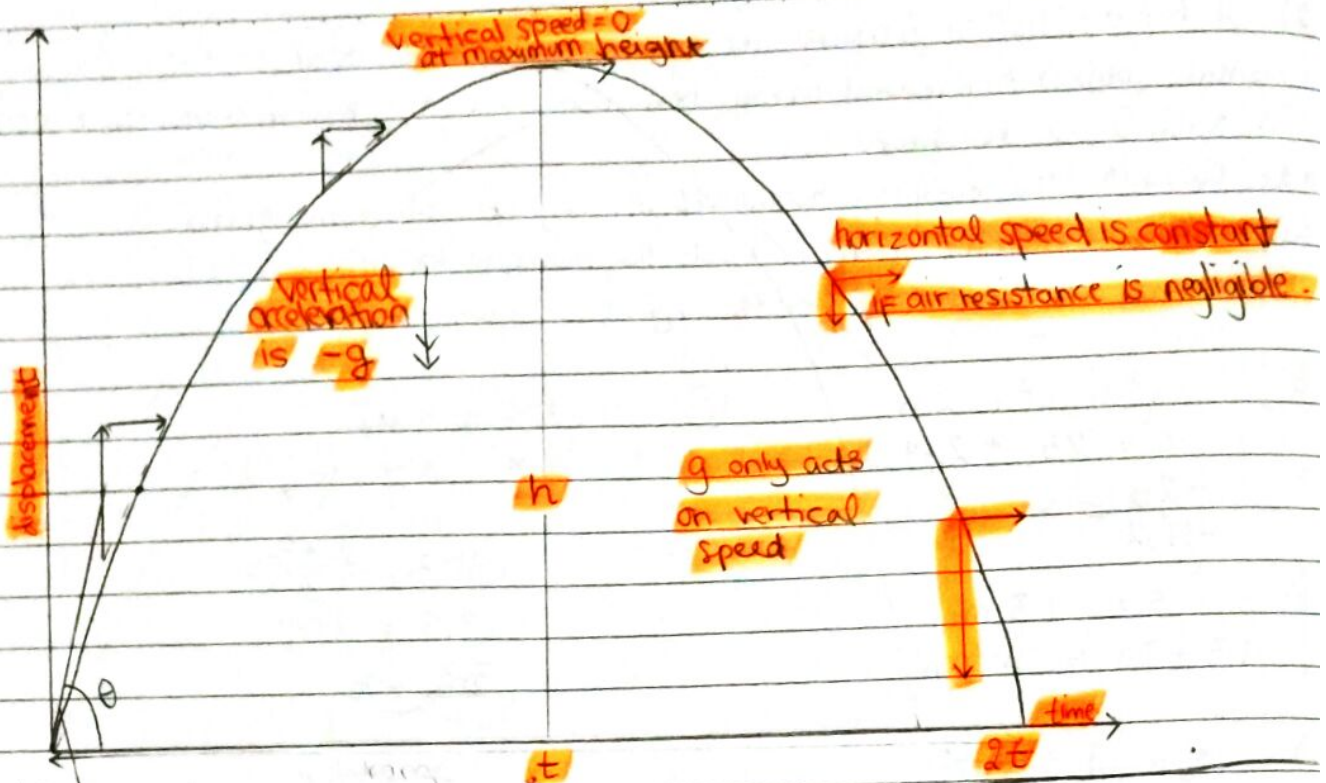 vertical speed = 0
at maximum height
horizontal speed is constant
if air resistance is negligible.
vertical
acceleration
is -g
displacement
g only acts
on vertical
speed
h
θ
time
t
2t